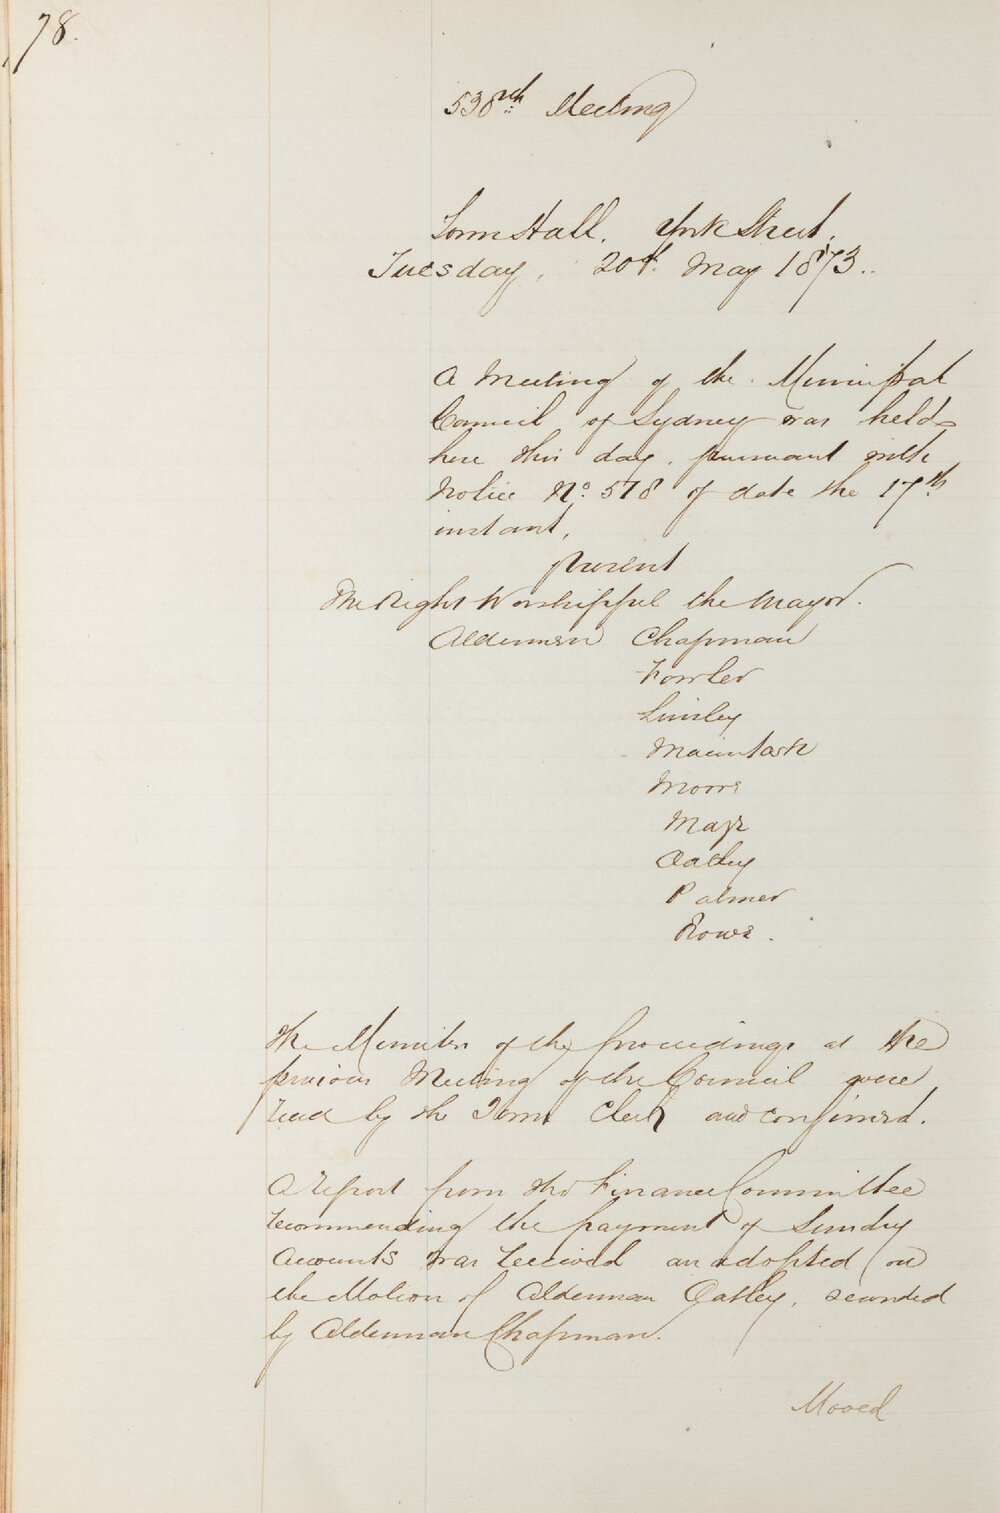 78.
538th Meeting
Town Hall, York Street,
Tuesday, 20th May 1873..
A Meeting of the Municipal
Council of Sydney was held
here this day, pursuant with
Notice No. 578 of date the 17th
instant,
present
The Right Worshipful the Mayor.
Aldermen Chapman
Fowler
Linsley
Macintosh
Moore
Oatley
Palmer
Rowe.
The Minutes of the proceedings at the
previous Meeting of the Council were
read by the Town Clerk and confirmed.
A report from the Finance Committee
recommending the payment of Sundry
Accounts was received an adopted on
the Motion of Alderman Oatley, seconded
by Alderman Chapman.
Moved